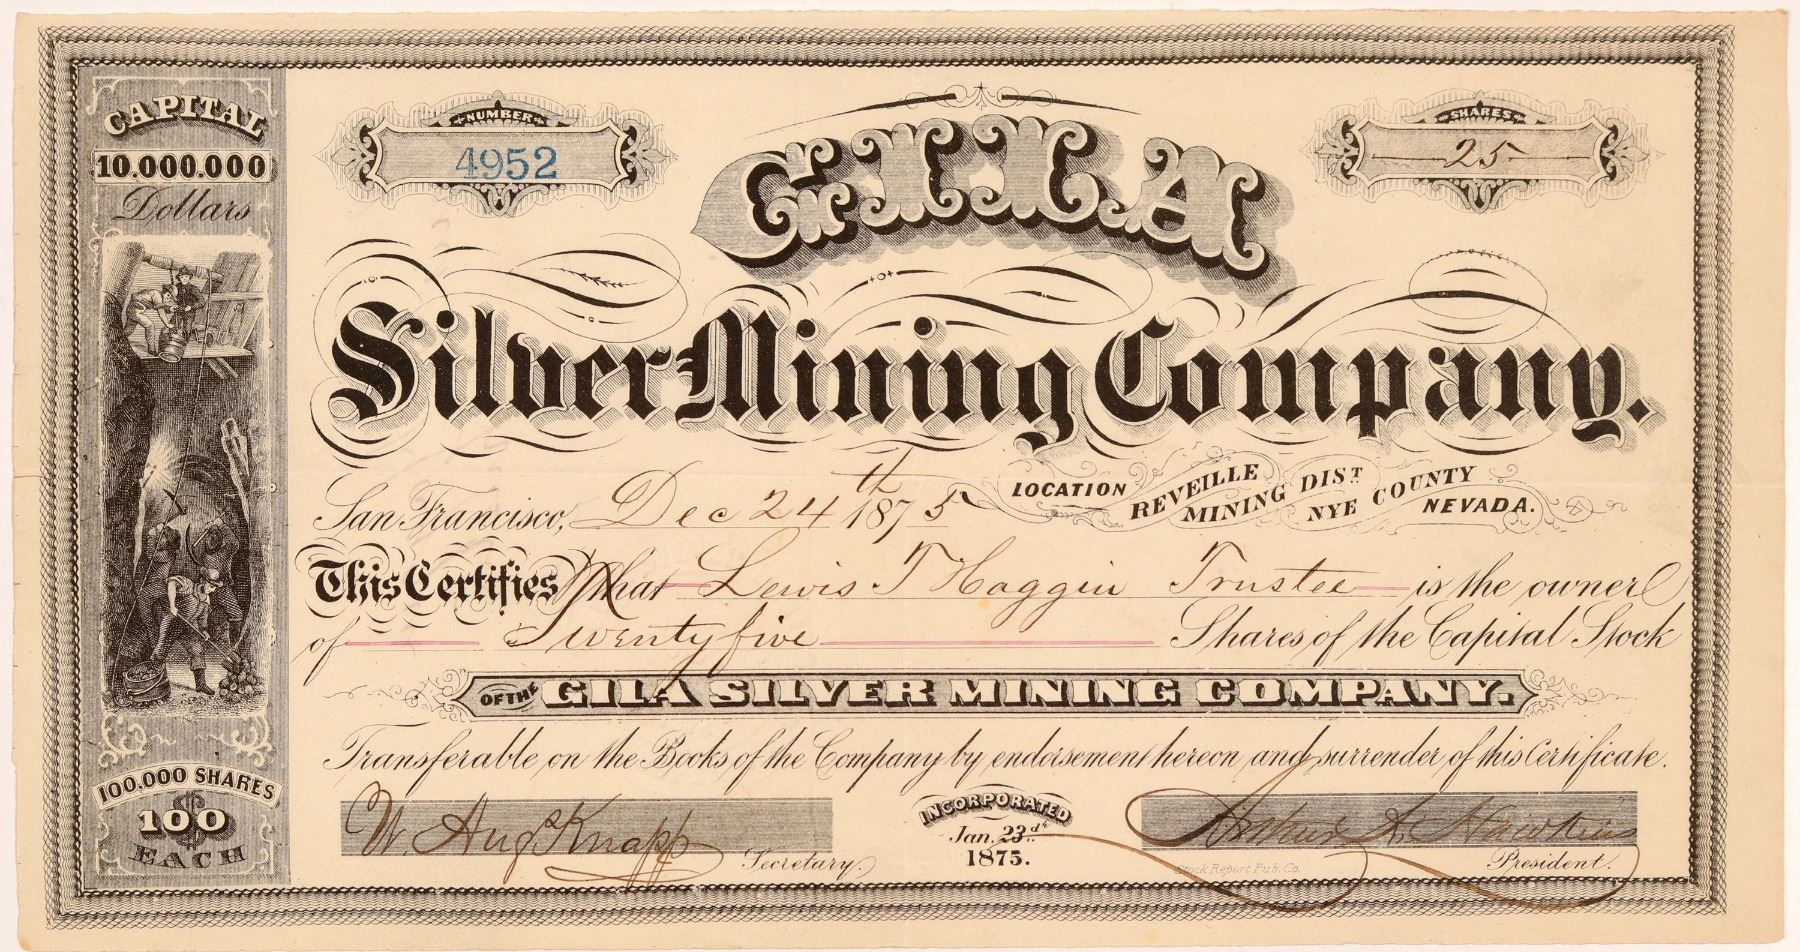 CAPITAL
10.000.000
Dollars
100.000 SHARES
$
100
EACH
NUMBER
4952
SHARES
25
GILA
Silver Mining Company.
San Francisco, Dec 24th 1875
LOCATION REVEILLE MINING DIST NYE COUNTY NEVADA.
This Certifies that Lewis T Haggin Trustee is the owner
of Twenty five Shares of the Capital Stock
OF THE GILA SILVER MINING COMPANY.
Transferable on the Books of the Company by endorsement hereon and surrender of this Certificate.
W. Augs Knapp Secretary.
INCORPORATED
Jan. 23d
1875.
Arthur A. Hawkins President.
Stock Report Pub. Co.